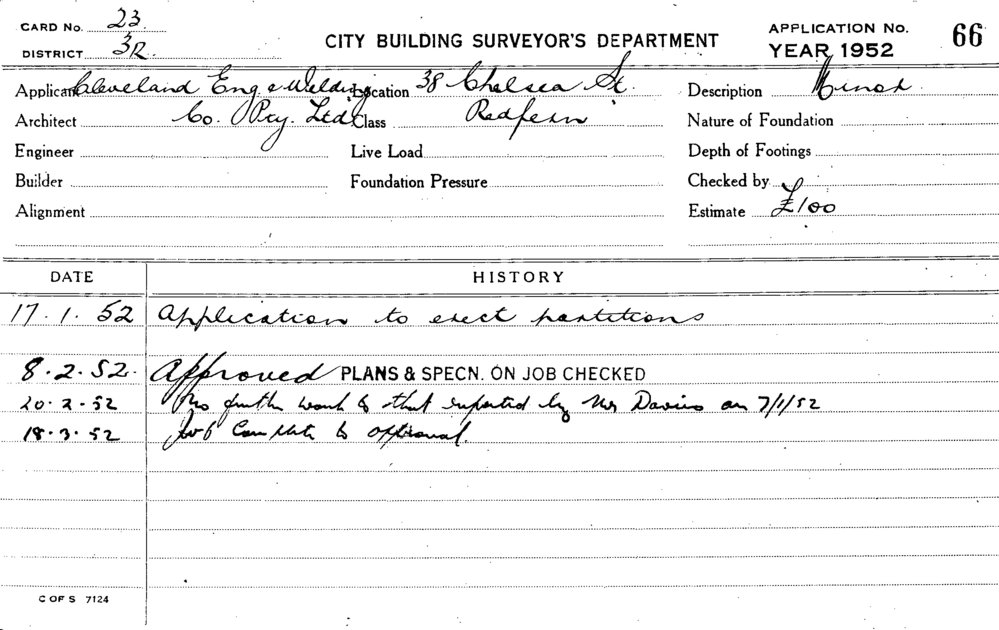 CARD No. 23
DISTRICT 3R
CITY BUILDING SURVEYOR'S DEPARTMENT
APPLICATION No. 66
YEAR 1952
Applicant Cleveland Eng & Welding Location 38 Chelsea St. Description Minor
Architect Co. Pty. Ltd Class Redfern Nature of Foundation
Engineer Live Load Depth of Footings
Builder Foundation Pressure Checked by
Alignment Estimate £100
DATE HISTORY
17.1.52 Application to erect partitions
8.2.52. Approved PLANS & SPECN. ON JOB CHECKED
20-2-52 No further work to that reported by Mr Davies on 7/1/52
18.3.52 Job Complete to approval.
C OF S 7124